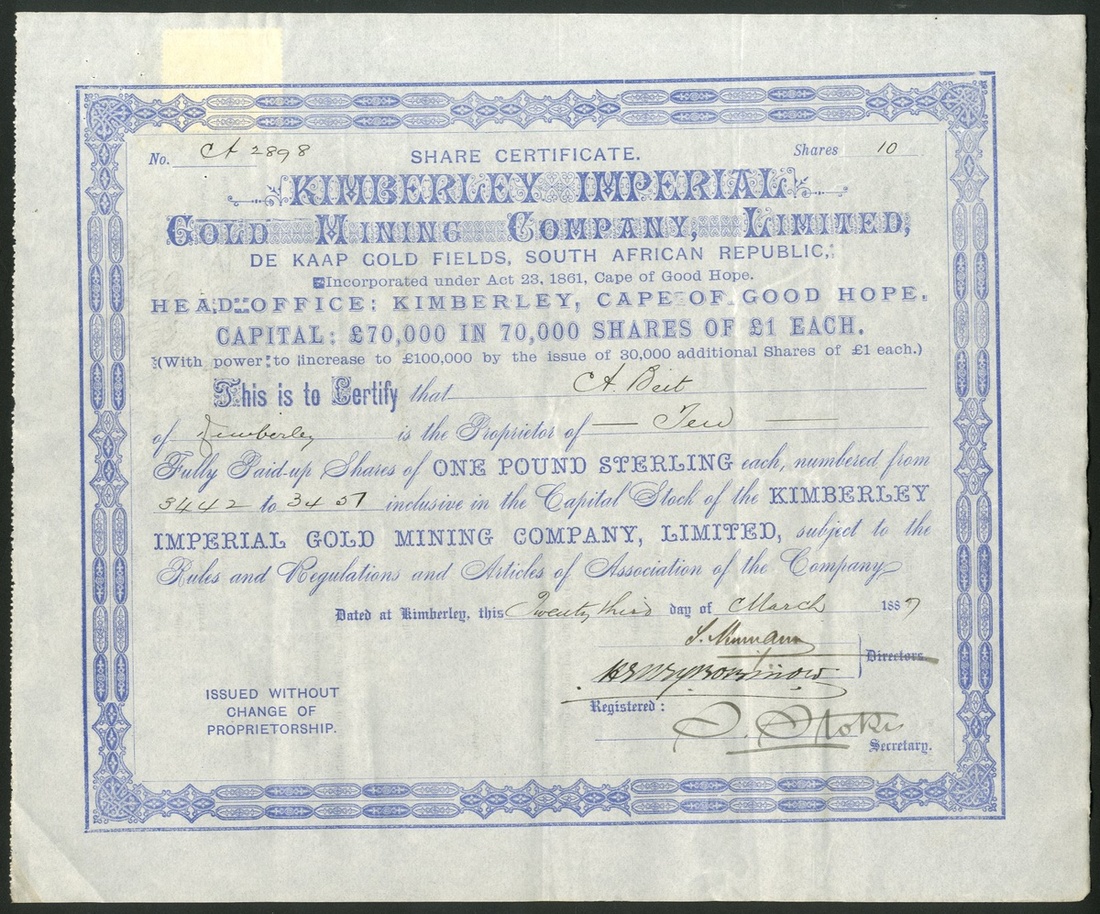 No. A 2898 SHARE CERTIFICATE. Shares 10
KIMBERLEY IMPERIAL
GOLD MINING COMPANY, LIMITED,
DE KAAP GOLD FIELDS, SOUTH AFRICAN REPUBLIC,
Incorporated under Act 23, 1861, Cape of Good Hope.
HEAD OFFICE: KIMBERLEY, CAPE OF GOOD HOPE.
CAPITAL: £70,000 IN 70,000 SHARES OF £1 EACH.
(With power to increase to £100,000 by the issue of 30,000 additional Shares of £1 each.)
This is to Certify that A. Beit
of Kimberley is the Proprietor of — Ten —
Fully Paid-up Shares of ONE POUND STERLING each, numbered from
3442 to 3451 inclusive in the Capital Stock of the KIMBERLEY
IMPERIAL GOLD MINING COMPANY, LIMITED, subject to the
Rules and Regulations and Articles of Association of the Company
Dated at Kimberley, this Twenty third day of March 1887
S. Neumann
Directors.
ISSUED WITHOUT
CHANGE OF
PROPRIETORSHIP.
Registered:
Secretary.